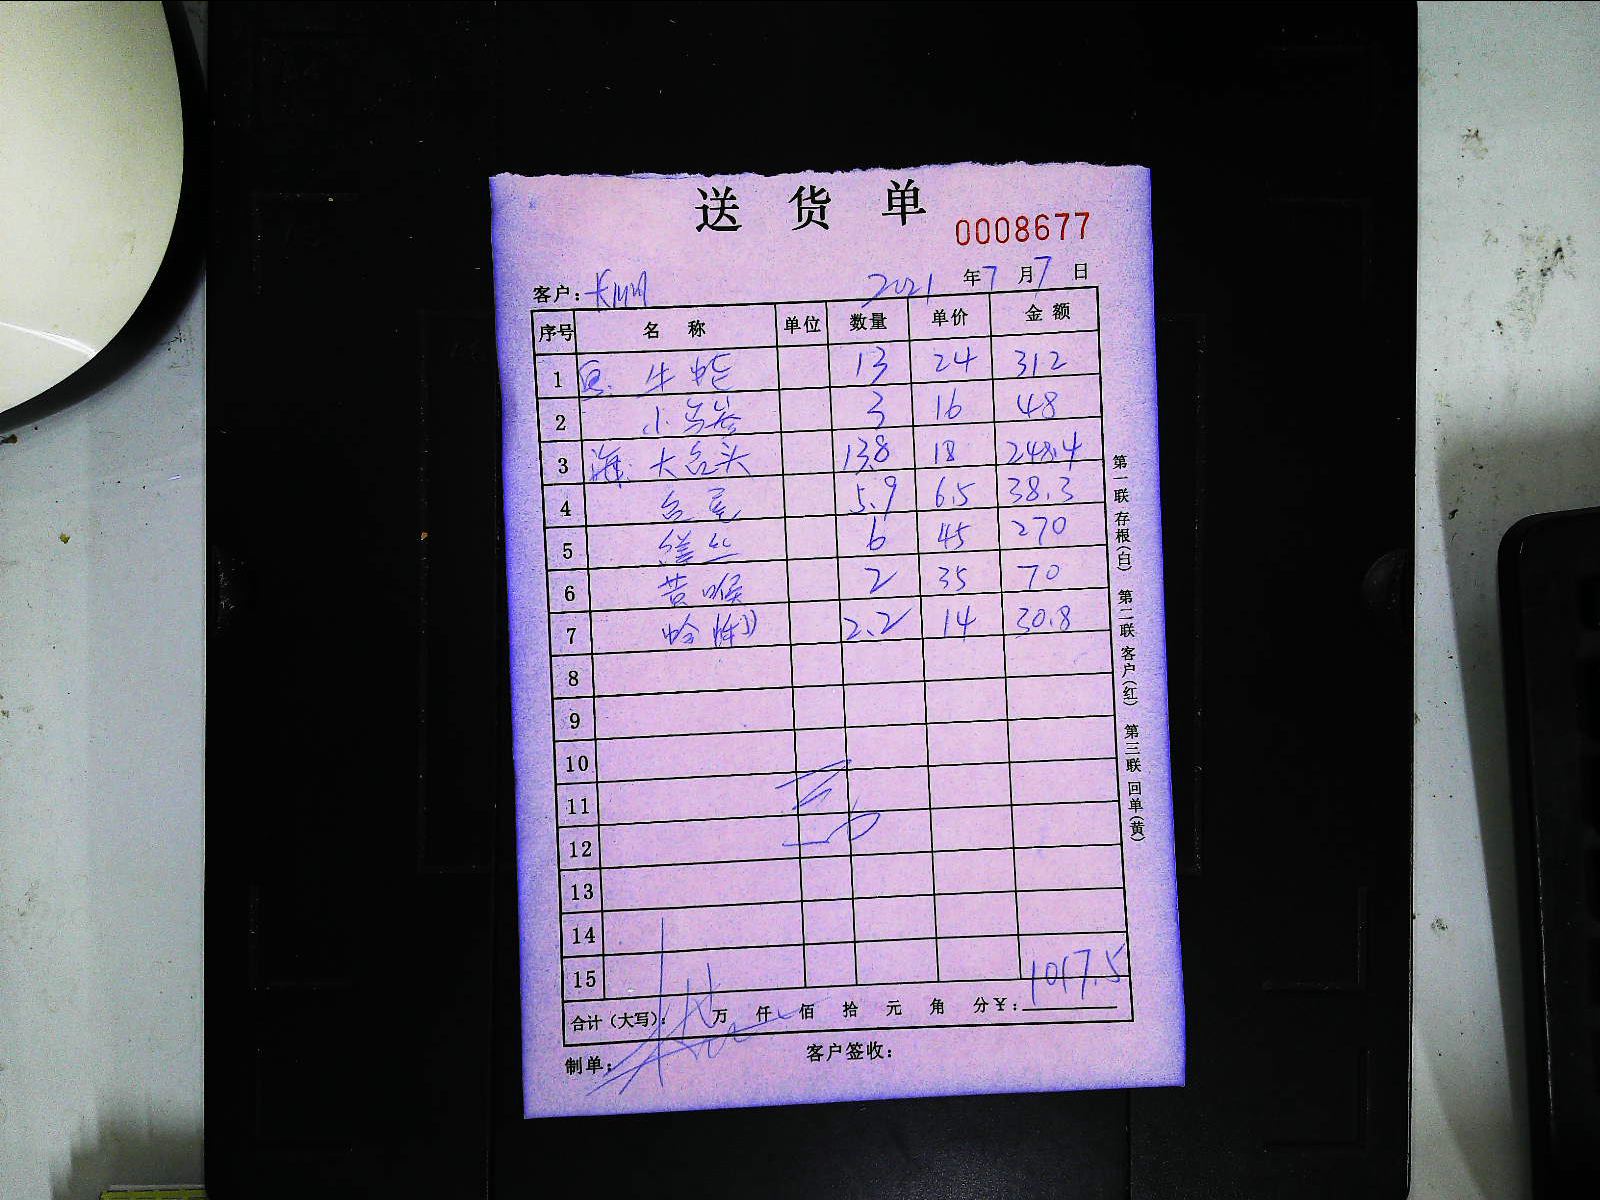 送 货 单
0008677
客户: 2021 年 7 月 7 日
序号 名 称 单位 数量 单价 金 额
1 牛蛙 13 24 312
2 小 3 16 48
3 大 头 13.8 18 248.4
4 尾 5.9 6.5 38.3
5 丝 6 45 270
6 黄喉 2 35 70
7 2.2 14 30.8
8
9
10
11
12
13
14
15 1017.5
合计(大写): 万 仟 佰 拾 元 角 分 ¥:
制单: 客户签收:
第一联 存根(白) 第二联 客户(红) 第三联 回单(黄)